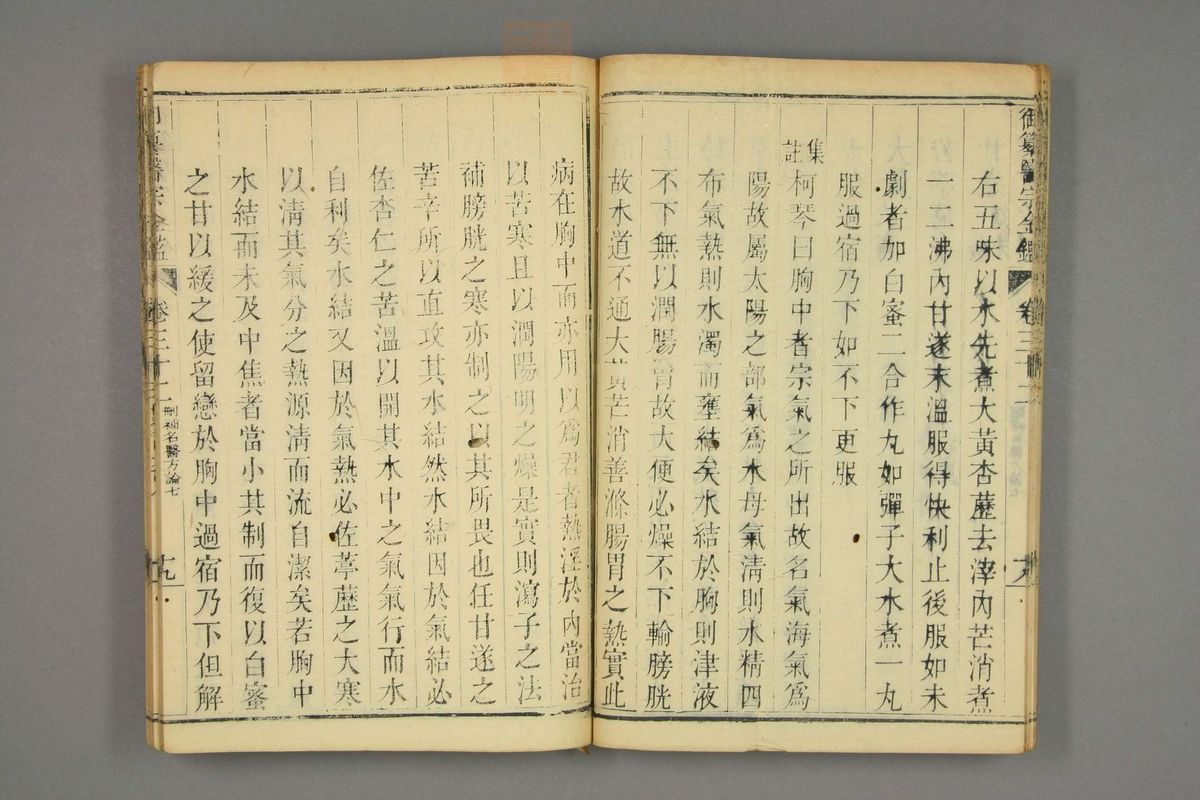 御纂醫宗金鑑 卷三十二
右五味以水先煮大黃杏藶去滓內芒消煮
一二沸內甘遂末溫服得快利止後服如未
劇者加白蜜二合作丸如彈子大水煮一丸
服過宿乃下如不下更服
集註
柯琴曰胸中者宗氣之所出故名氣海氣爲
陽故屬太陽之部氣爲水母氣淸則水精四
布氣熱則水濁而壅結矣水結於胸則津液
不下無以潤腸胃故大便必燥不下輸膀胱
故水道不通大黃芒消善滌腸胃之熱實此
病在胸中而亦用以爲君者熱淫於內當治
以苦寒且以潤陽明之燥是實則瀉子之法
補膀胱之寒亦制之以其所畏也任甘遂之
苦辛所以直攻其水結然水結因於氣結必
佐杏仁之苦溫以開其水中之氣氣行而水
自利矣水結又因於氣熱必佐葶藶之大寒
以淸其氣分之熱源淸而流自潔矣若胸中
水結而未及中焦者當小其制而復以白蜜
之甘以緩之使留戀於胸中過宿乃下但解
纂醫宗金鑑 卷三十二 刪補名醫方論七 十九